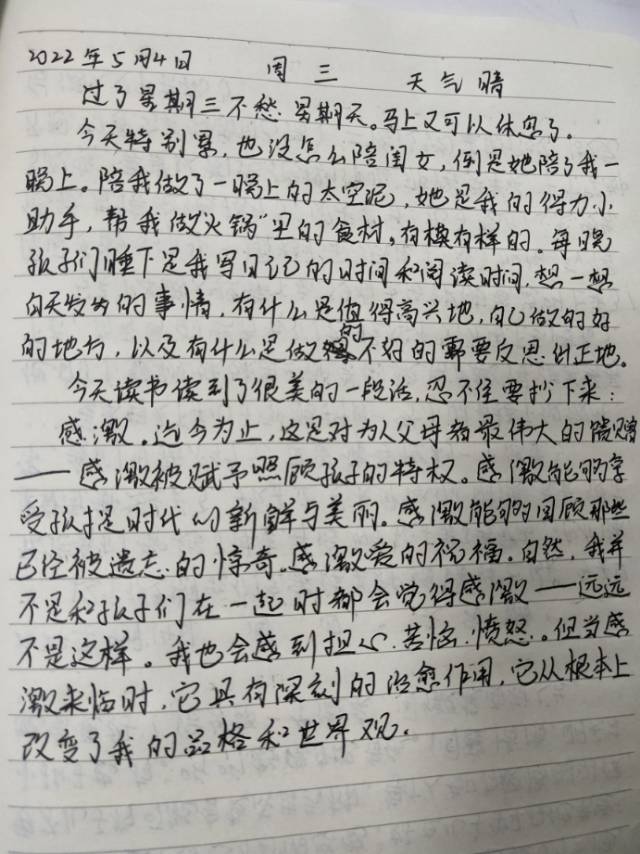 2022年5月4日 周三 天气晴
过了星期三不愁星期天。马上又可以休息了。
今天特别累，也没怎么陪闺女，倒是她陪了我一
晚上。陪我做了一晚上的太空泥，她是我的得力小
助手，帮我做"火锅"里的食材，有模有样的。每晚
孩子们睡下是我写日记的时间和阅读时间，想一想
白天发生的事情，有什么是值得高兴地，自己做的好
的地方，以及有什么是做的不好的需要反思纠正地。
今天读书读到了很美的一段话，忍不住要抄下来：
感激。迄今为止，这是对为人父母者最伟大的馈赠
——感激被赋予照顾孩子的特权。感激能够享
受孩提时代的新鲜与美丽。感激能够回顾那些
已经被遗忘的惊奇。感激爱的祝福。自然，我并
不是和孩子们在一起时都会觉得感激——远远
不是这样。我也会感到担心、苦恼、愤怒。但当感
激来临时，它具有深刻的治愈作用，它从根本上
改变了我的品格和世界观.